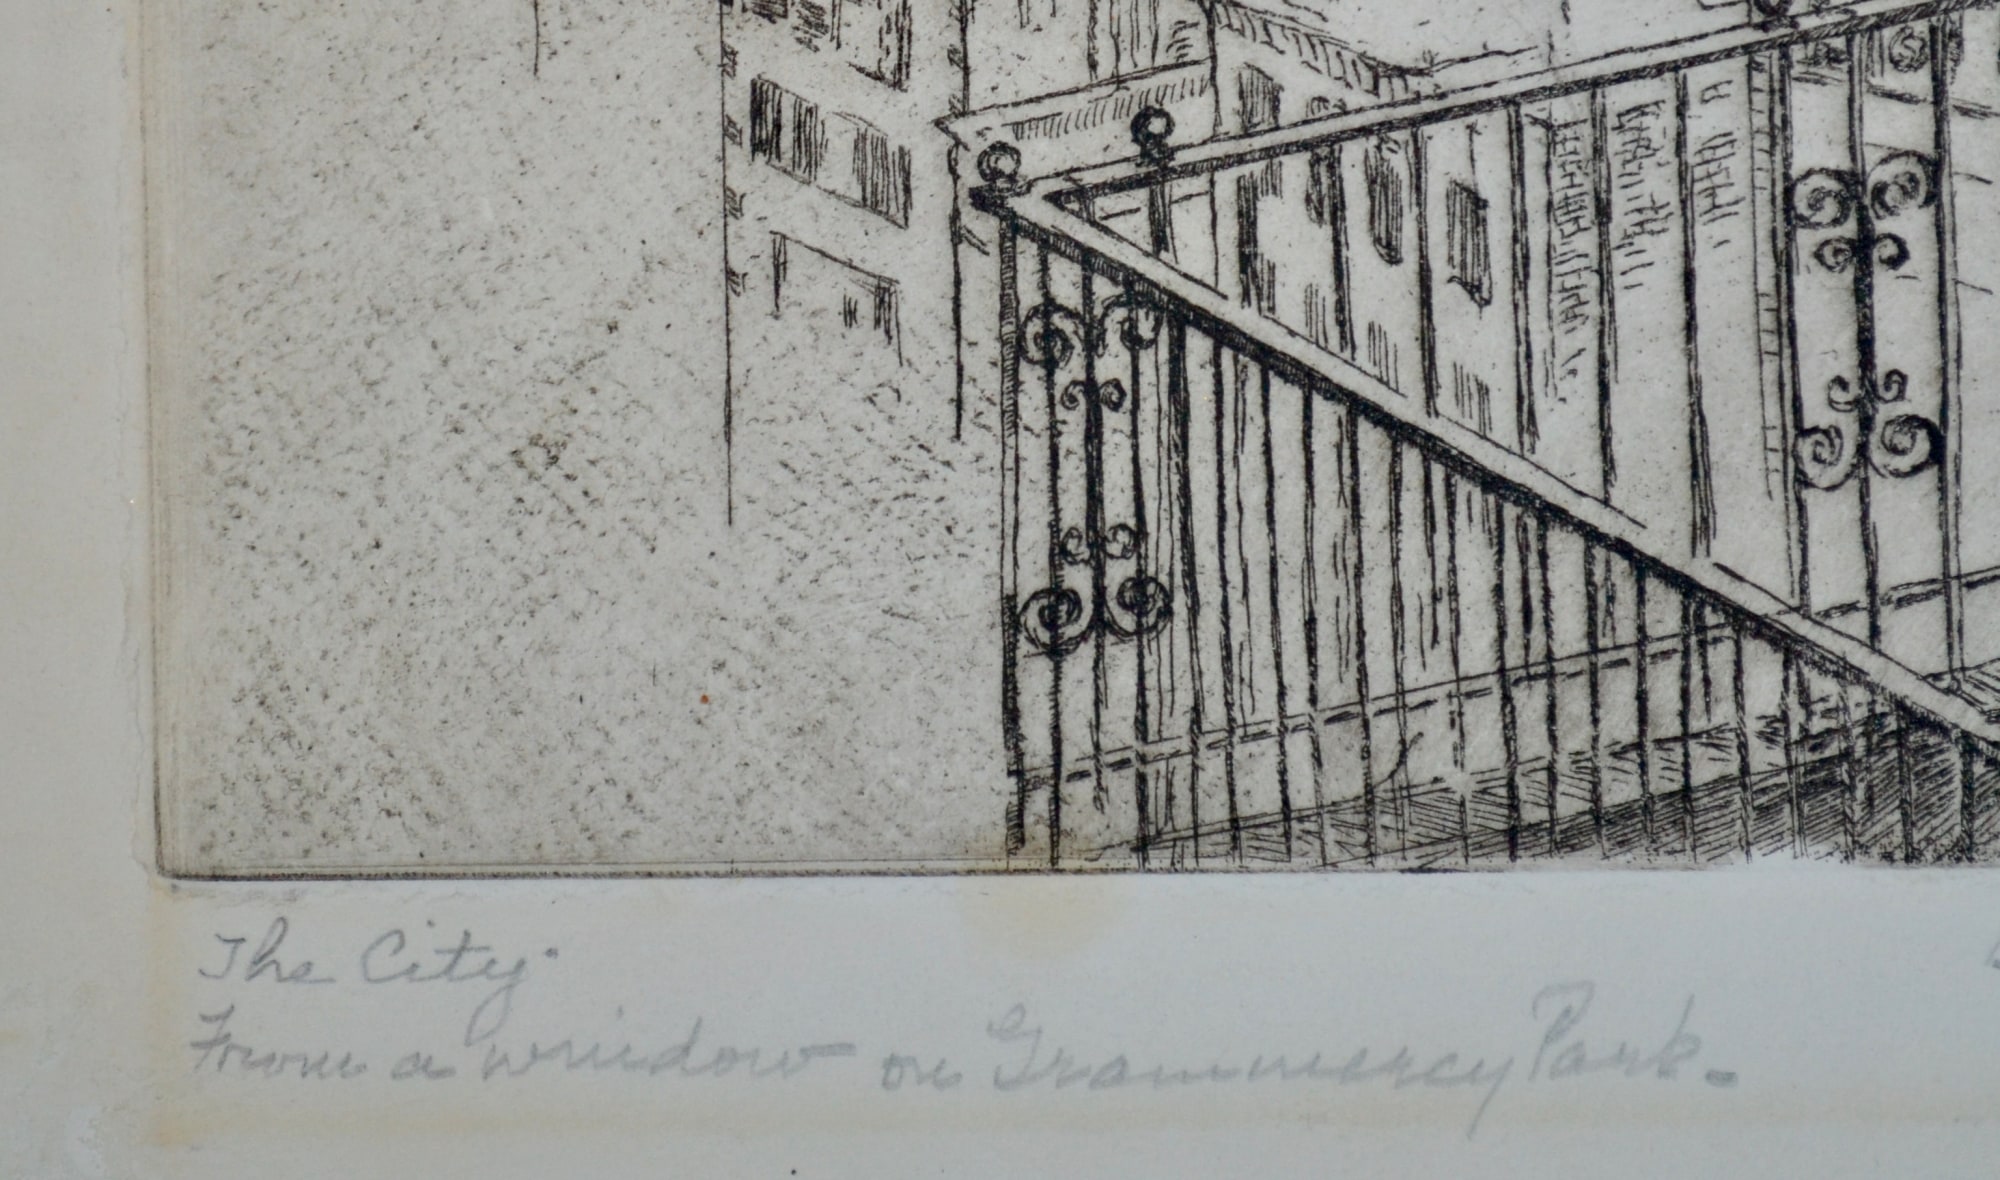 The City.
From a window on Grammercy Park.